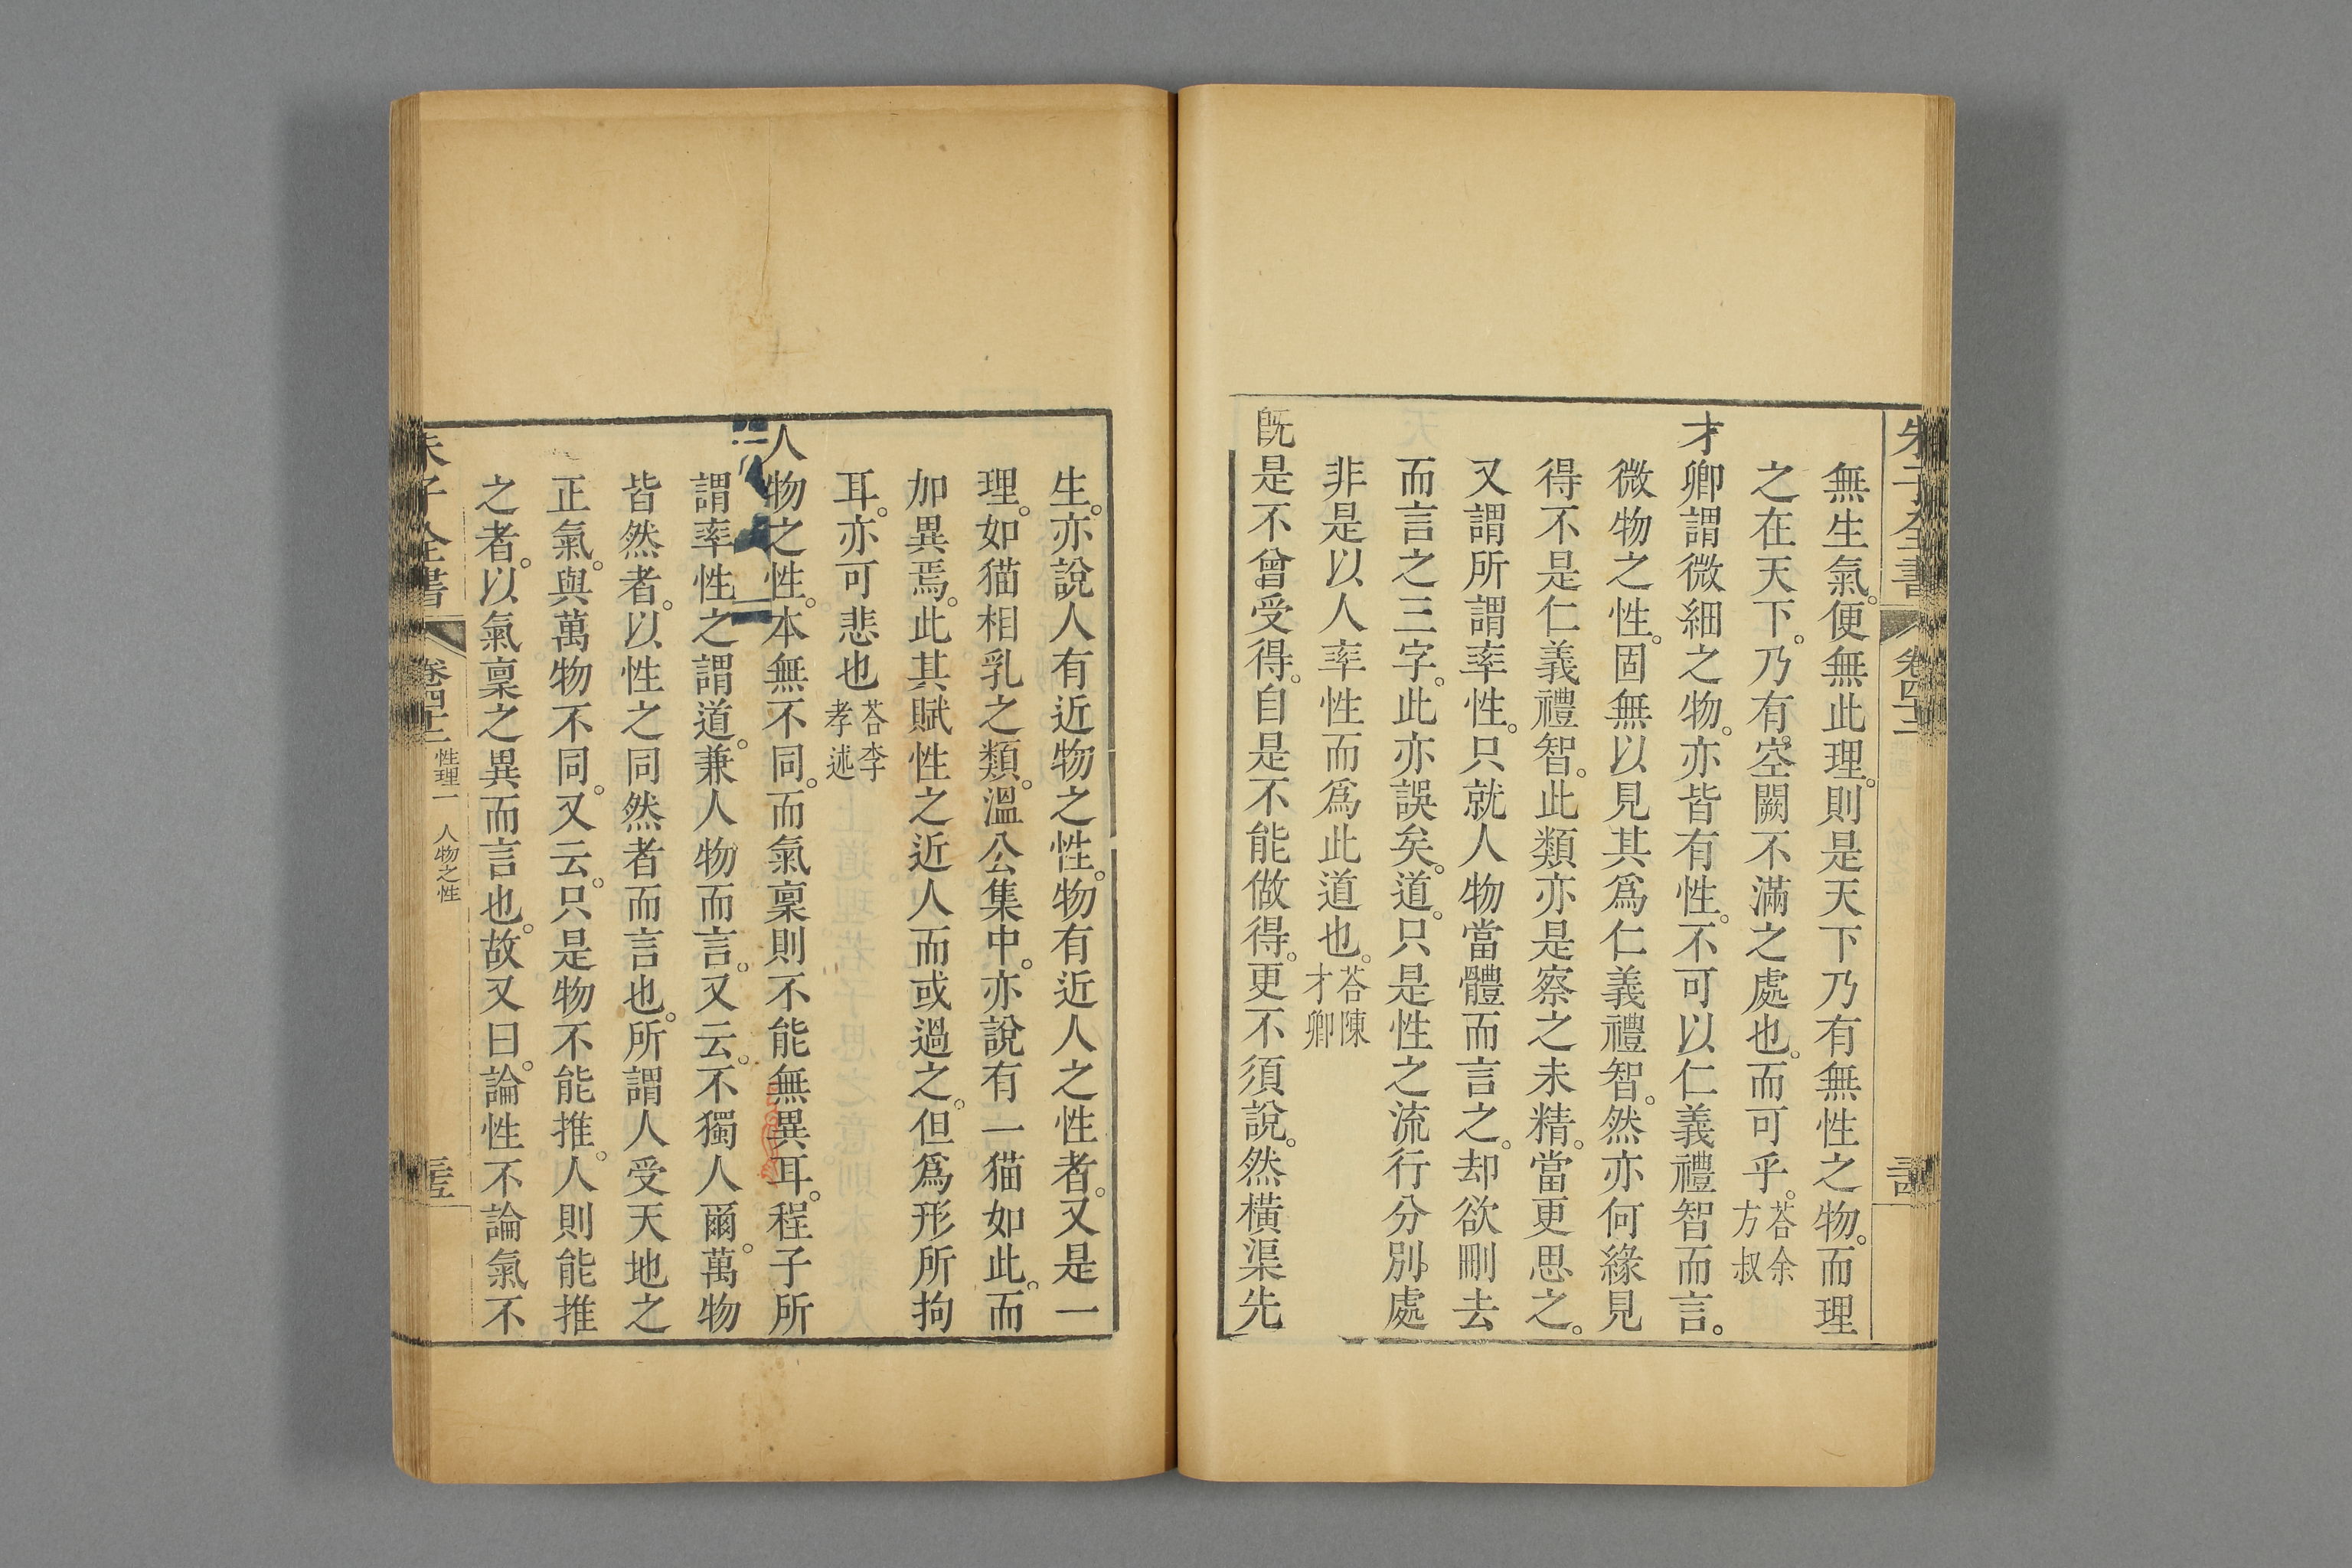 無生氣。便無此理。則是天下乃有無性之物。而理
之在天下。乃有空闕不滿之處也。而可乎。荅余方叔
才卿謂微細之物。亦皆有性。不可以仁義禮智而言。
微物之性。固無以見其爲仁義禮智。然亦何緣見
得不是仁義禮智。此類亦是察之未精。當更思之。
又謂所謂率性。只就人物當體而言之。却欲刪去
而言之三字。此亦誤矣。道。只是性之流行分別處
非是以人率性而爲此道也。荅陳才卿
旣是不曾受得。自是不能做得。更不須說。然橫渠先
生。亦說人有近物之性。物有近人之性者。又是一
理。如猫相乳之類。溫公集中。亦說有一猫如此。而
加異焉。此其賦性之近人而或過之。但爲形所拘
耳。亦可悲也荅李孝述
人物之性。本無不同。而氣稟則不能無異耳。程子所
謂率性之謂道。兼人物而言。又云。不獨人爾。萬物
皆然者。以性之同然者而言也。所謂人受天地之
正氣。與萬物不同。又云。只是物不能推。人則能推
之者。以氣稟之異而言也。故又曰。論性不論氣不
朱子全書
卷四十二
性理一 人物之性